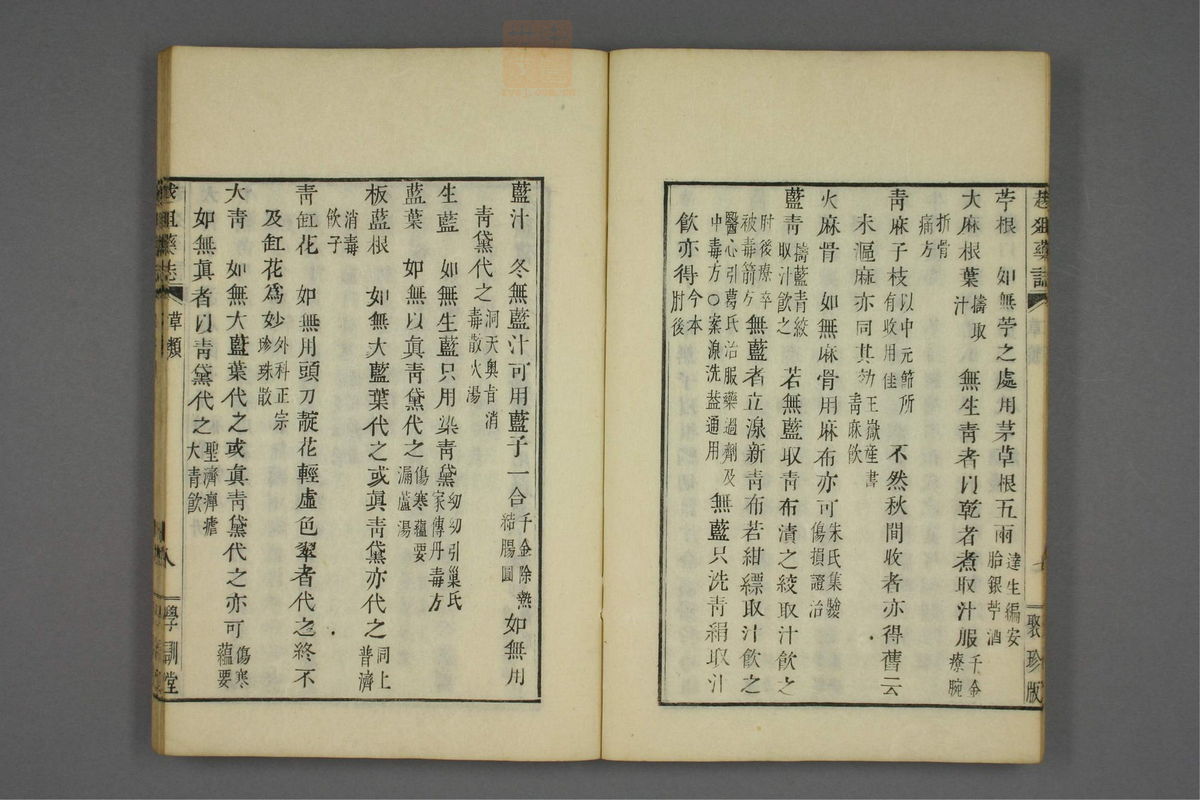 苧根　如無苧之處用茅草根五兩達生編安胎銀苧酒
大麻根葉擣取汁　無生青者以乾者煮取汁服千金療腕
折骨痛方
青麻子枝以中元節所有收用佳　不然秋間收者亦得舊云
未漚麻亦同其効王嶽産書青麻飲
火麻骨　如無麻骨用麻布亦可朱氏集驗傷損證治
藍青擣藍青絞取汁飲之　若無藍取青布漬之絞取汁飲之
肘後療卒被毒箭方無藍者立湶新青布若紺縹取汁飲之
醫心引葛氏治服藥過劑及中毒方○案湶洗葢通用無藍只洗青絹取汁
飲亦得今本肘後
聚珍版
藍汁　冬無藍汁可用藍子一合千金除熱結腸圓如無用
青黛代之洞天奥旨消毒散火湯
生藍　如無生藍只用染青黛幼幼引巢氏家傳丹毒方
藍葉　如無以眞青黛代之傷寒蘊要漏蘆湯
板藍根　如無大藍葉代之或眞青黛亦代之同上普濟
消毒飲子
青缸花　如無用頭刀靛花輕虛色翠者代之終不
及缸花爲妙外科正宗珍珠散
大青　如無大藍葉代之或眞青黛代之亦可傷寒蘊要
如無眞者以青黛代之聖濟癉瘧大青飲
草類
八
學訓堂